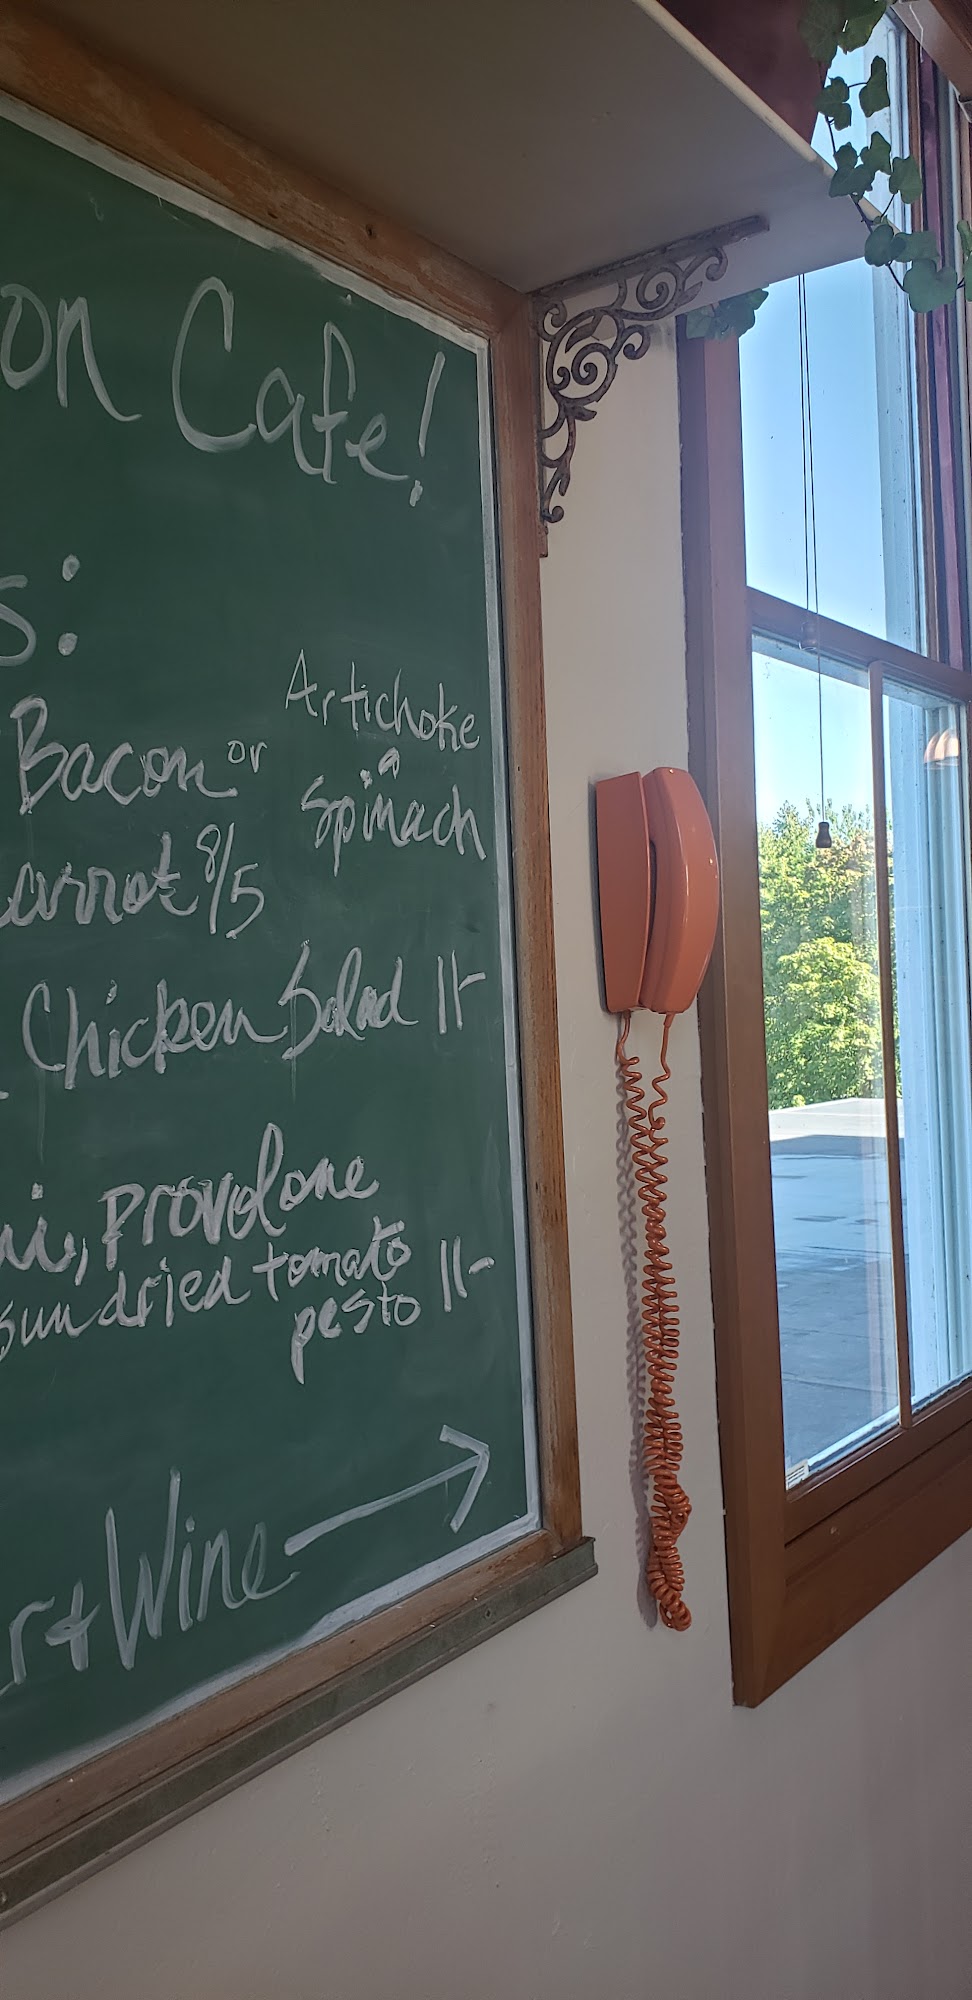 on Cafe!
s:
Bacon or Artichoke
Spinach
carrot 8/5
Chicken Salad 11-
ni, provolone
sun dried tomato
pesto 11-
r + Wine →